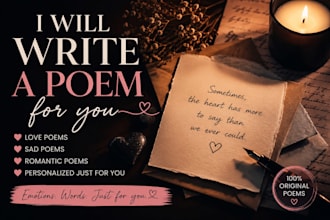 I WILL
WRITE
A POEM
for you
LOVE POEMS
SAD POEMS
ROMANTIC POEMS
PERSONALIZED JUST FOR YOU
Emotions. Words. Just for you.
Sometimes,
the heart has more
to say than
we ever could.
100%
ORIGINAL
POEMS